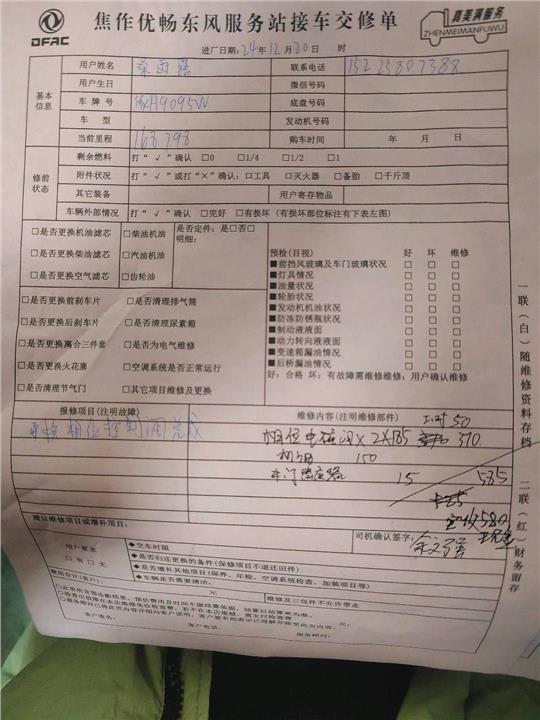 DFAC
焦作优畅东风服务站接车交修单
真美满服务
ZHENMEIMANFUWU
进厂日期：24年12月20日 时
基本信息
用户姓名 联系电话 15225807388
用户生日 微信号码
车牌号 H9095W 底盘号码
车型 发动机号码
当前里程 168798 购车时间 年 月 日
修前状态
剩余燃料 打“√”确认 □0 □1/4 □1/2 □1
附件状况 打“√”或打“×”确认：□工具 □灭火器 □备胎 □千斤顶
其它装备 用户寄存物品
车辆外部情况 打“√”确认 □完好 □有损坏（有损坏部位标注有下表左图）
□是否更换机油滤芯 □柴油机油 是否定件：是□否□
明细：
□是否更换柴油滤芯 □汽油机油
□是否更换空气滤芯 □齿轮油
□是否更换前刹车片 □是否清理排气筒
□是否更换后刹车片 □是否清理尿素箱
□是否更换离合三件套 □是否为电气维修
□是否更换火花塞 □空调系统是否正常运行
□是否清理节气门 □其它项目维修及更换
预检(目视) 好 坏 维修
■前挡风玻璃及车门玻璃状况 □ □ □
■灯具情况 □ □ □
■油量状况 □ □ □
■轮胎状况 □ □ □
■发动机机油状况 □ □ □
■防冻防锈瓶状况 □ □ □
■制动液液面 □ □ □
■动力转向液液面 □ □ □
■变速箱漏油情况 □ □ □
■后桥漏油情况 □ □ □
好：合格 坏：有故障需维修维修：用户确认维修
报修项目(注明故障) 维修内容(注明维修部件) 工时50
更换相位控制阀总成 相位电磁阀×2×185 370
150
车门感应器 15 585
585
实收580
建议维修项目或增补项目：
司机确认签字：
用户要求
□有 □无
◆交车时限
◆是否归还更换的备件(保修项目不退还旧件)
◆是否增补其他项目(保养、年检、空调系统检查、加装项目等)
◆车辆是否需要清洁：
费用合计(客户)： 元 维修及三包件不允许带走
客户签名：
客户电话： 服务顾问：
一联（白）随维修资料存档
二联（红）财务留存